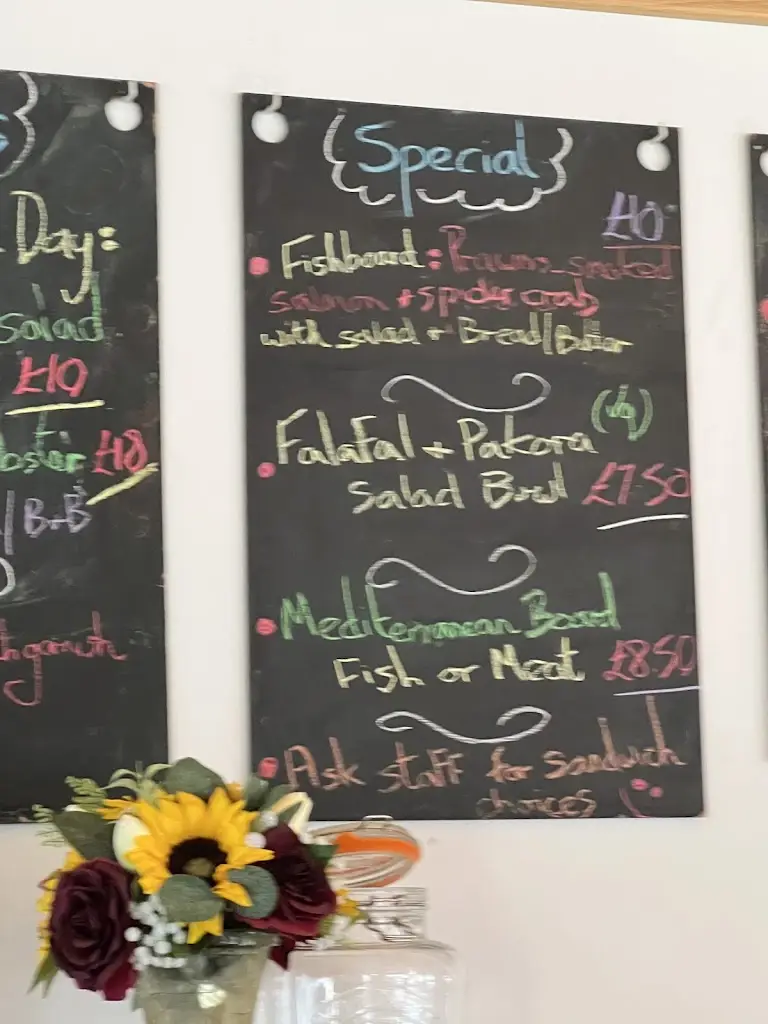 Day:
salad
£10
£18
B+B
Special
£10
Fishboard: Prawns, smoked
salmon + spider crab
with salad + Bread/Butter
Falafal + Pakora (Vg)
Salad Bowl £7.50
Mediterranean Board
Fish or Meat £8.50
Ask staff for sandwich
choices